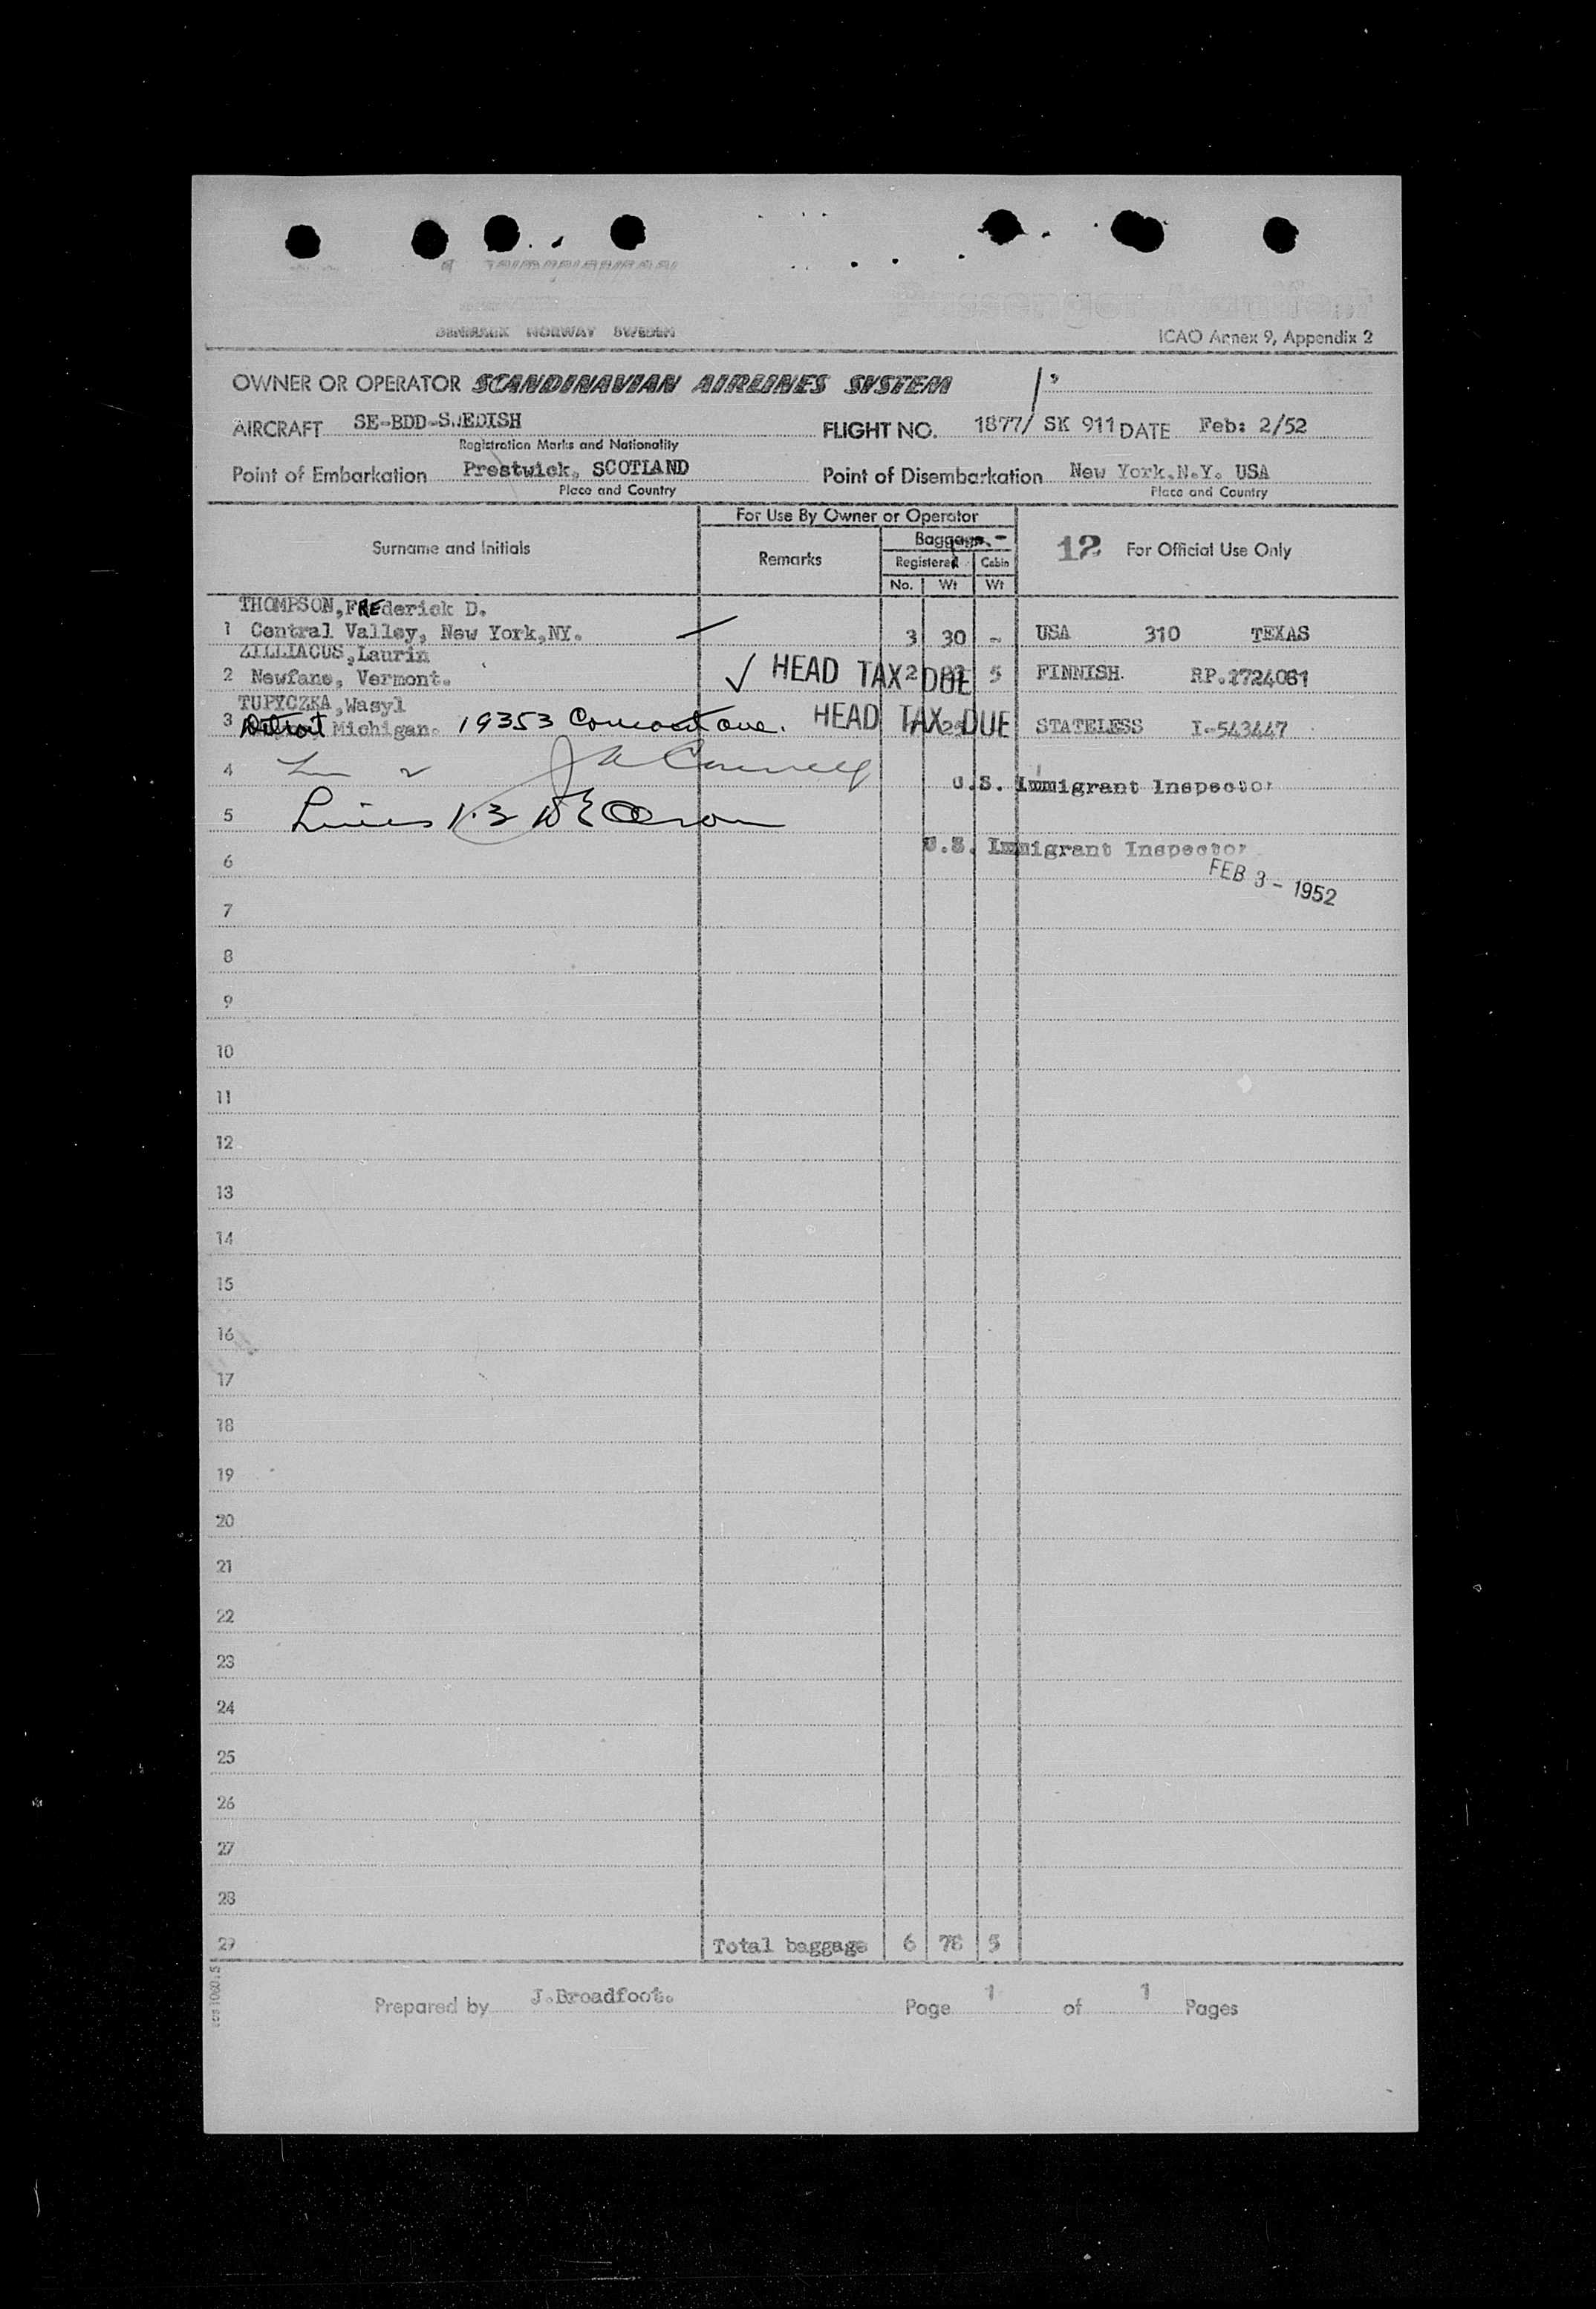 DENMARK NORWAY SWEDEN
ICAO Annex 9, Appendix 2
OWNER OR OPERATOR SCANDINAVIAN AIRLINES SYSTEM
AIRCRAFT SE-BDD-SWEDISH FLIGHT NO. 1877/ SK 911 DATE Feb: 2/52
Registration Marks and Nationality
Point of Embarkation Prestwick, SCOTLAND Point of Disembarkation New York.N.Y. USA
Place and Country Place and Country
For Use By Owner or Operator
Surname and Initials Remarks Baggage. 12 For Official Use Only
Registered Cabin
No. Wt Wt
THOMPSON,FREderick D.
1 Central Valley, New York,NY. 3 30 - USA 310 TEXAS
ZILLIACUS,Laurin
2 Newfane, Vermont. HEAD TAX DUE 2 5 FINNISH. RP.2724081
TUPYCZKA,Wasyl
3 Detroit Michigan. 19353 ave. HEAD TAX DUE STATELESS I-543447
4
U.S. Immigrant Inspector
5 Lines 1.3
U.S. Immigrant Inspector
6
FEB 3 - 1952
7
8
9
10
11
12
13
14
15
16
17
18
19
20
21
22
23
24
25
26
27
28
29 Total baggage 6 78 5
Prepared by J.Broadfoot. Page 1 of 1 Pages